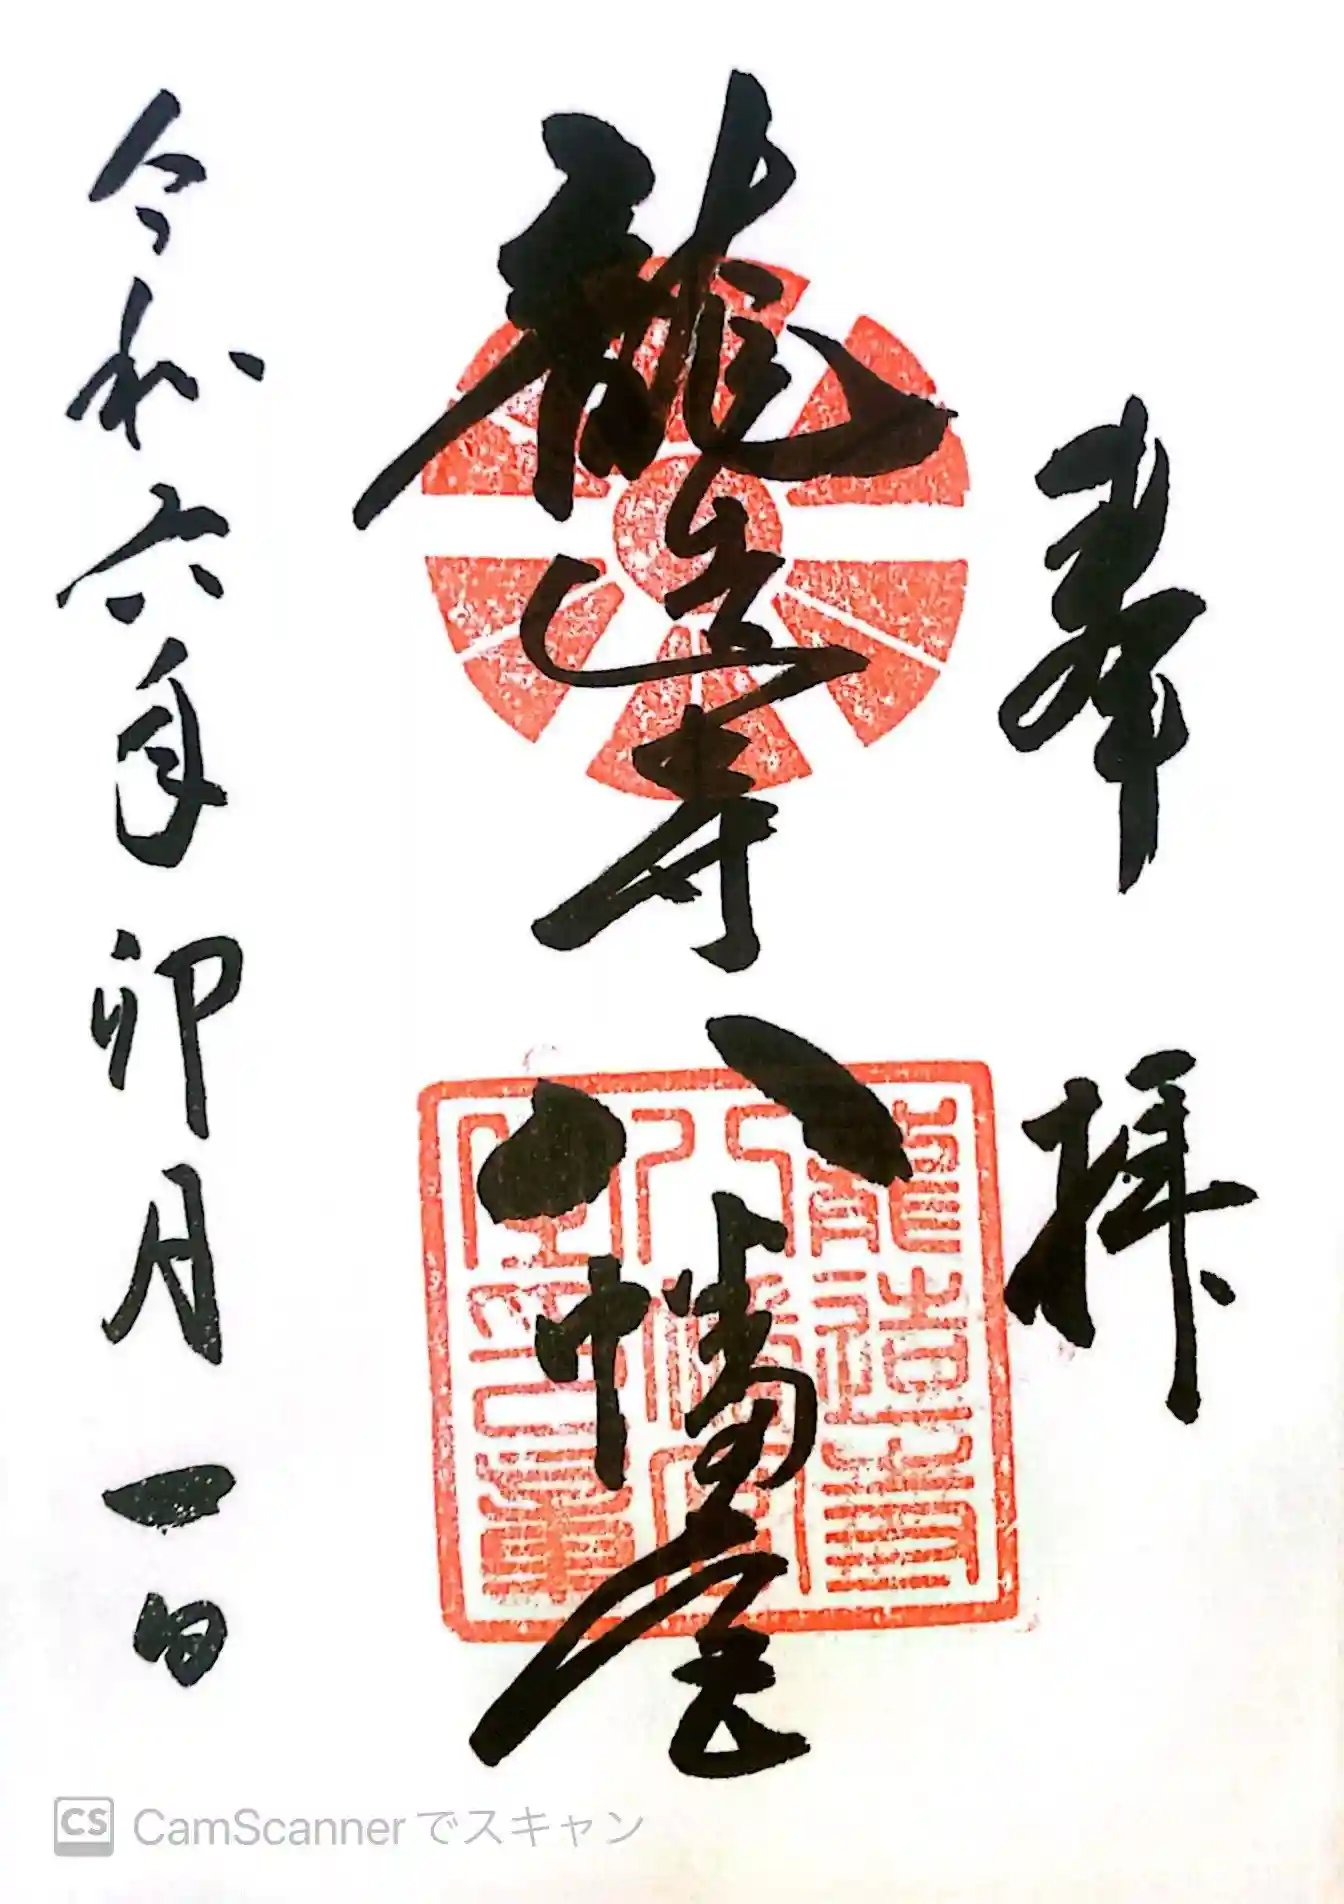 奉拝
龍造寺八幡宮
令和六年卯月一日
龍造寺
八幡宮
CS CamScannerでスキャン